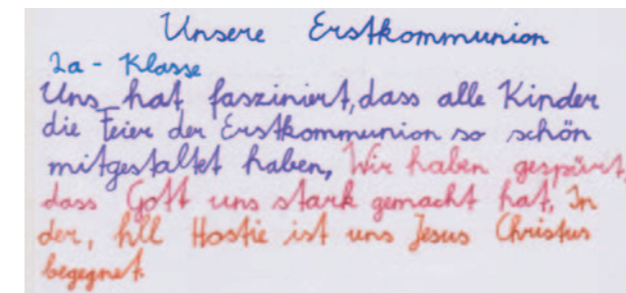 Unsere Erstkommunion
2a - Klasse
Uns hat fasziniert, dass alle Kinder
die Feier der Erstkommunion so schön
mitgestaltet haben, Wir haben gespürt,
dass Gott uns stark gemacht hat, In
der, hll Hostie ist uns Jesus Christus
begegnet.